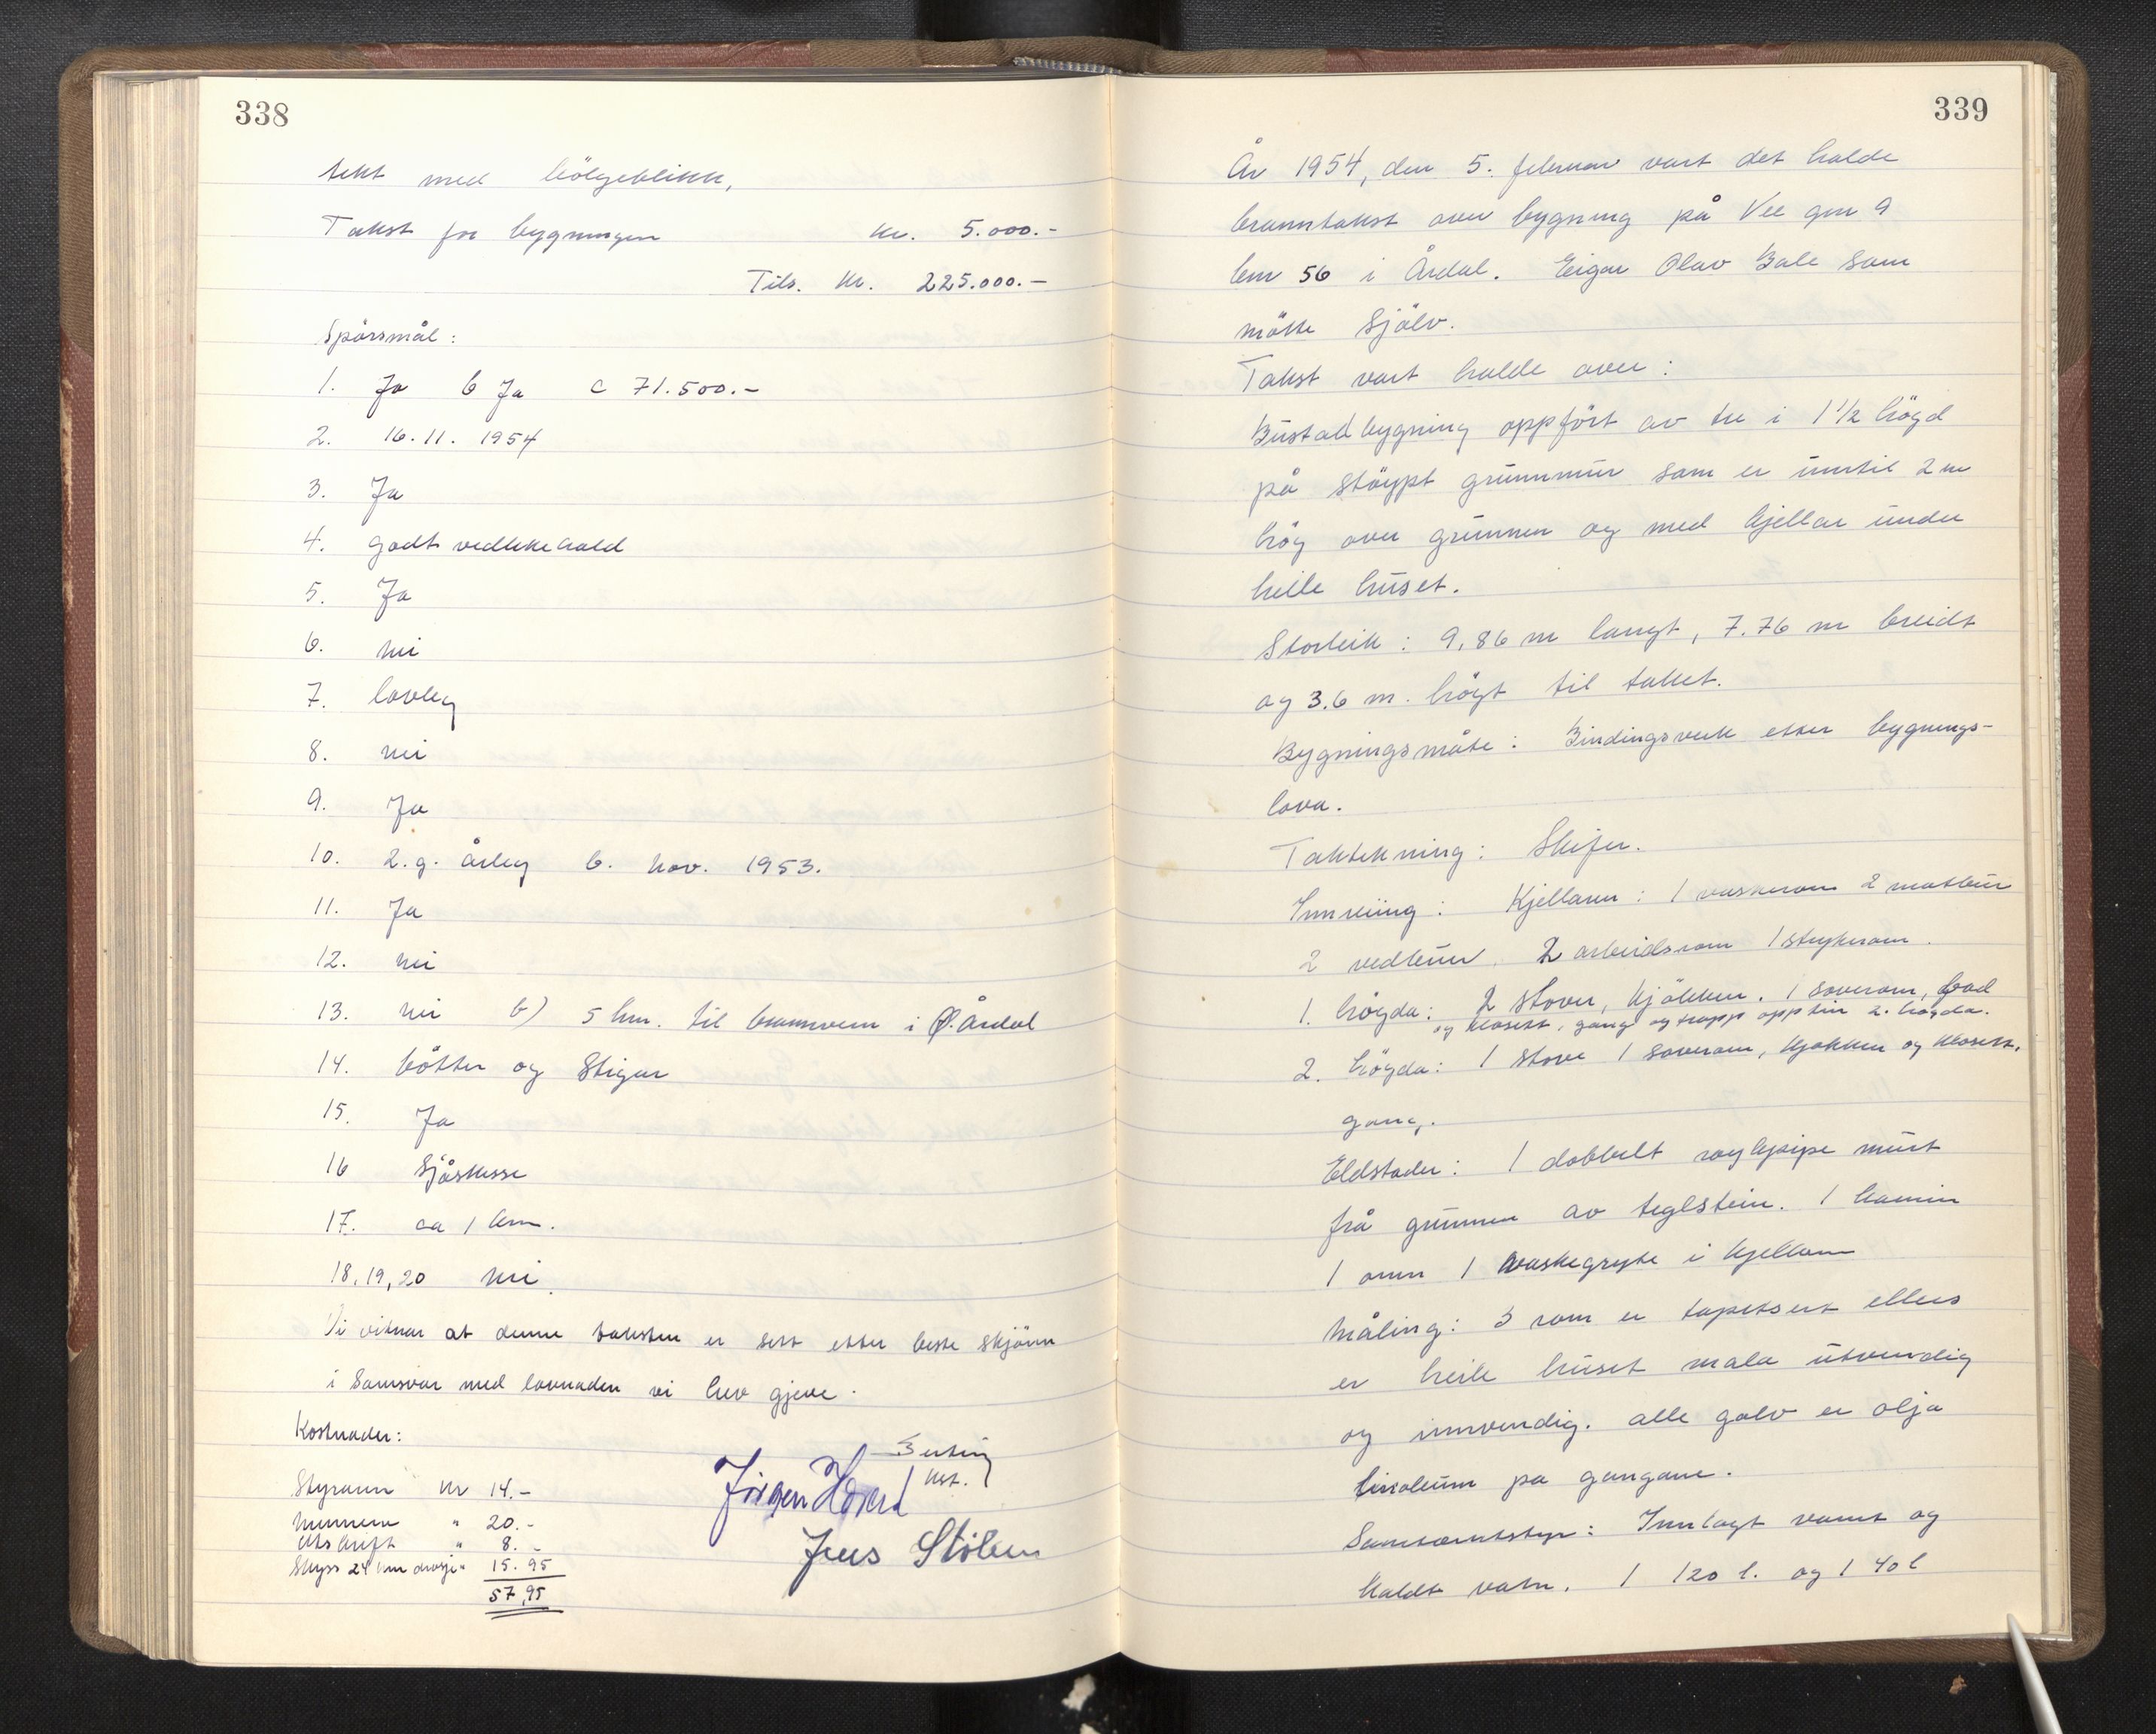 338
tekt med bölgeblikk,
Takst for bygningen kr. 5.000.-
Tils. kr. 225.000.-
Spörsmål:
1. Ja b Ja c 71.500.-
2. 16.11. 1954
3. Ja
4. godt vedlikehald
5. Ja
6. nei
7. lovleg
8. nei
9. Ja
10. 2.g. årleg b. nov. 1953.
11. Ja
12. nei
13. nei b) 5 km. til brannvern i Ø. Årdal
14. bötter og stigar
15. Ja
16 Sjåskesse
17. ca 1 km.
18, 19, 20 nei.
Vi vitnar at denne taksten er sett etter beste skjönn
i samsvar med lovnaden vi hev gjeve.
Kostnader:
Styraren kr 14.-
Mennene " 20.-
Utskrift " 8.-
Skyss 24 km drosje " 15.95
57,95
Jörgen Hovland
Jens Stölen
339
År 1954, den 5. februar vart det halde
branntakst over bygning på Vee gnr 9
bnr 56 i Årdal. Eigar Olav Bale som
mötte sjölv.
Takst vart halde over:
Bustadbygning oppfört av tre i 1 1/2 högd
på stöypt grunnmur som er inntil 2 m
hög over grunnen og med kjellar under
heile huset.
Storleik: 9,86 m langt, 7.76 m breidt
og 3.6 m. högt til taket.
Bygningsmåte: Bindingsverk etter bygnings-
lova.
Taktekning: Skifer.
Innreiing: Kjellaren: 1 vaskerom 2 matbur
2 vedbuer. 2 arbeidsrom 1 strykerom.
1. högda: 2 stover, kjökken. 1 soverom, bad
og klosett, gang og trapp opp til 2. högda.
2. högda: 1 stove 1 soverom, kjökken og klosett.
gang.
Eldstader: 1 dobbelt röykpipe murt
frå grunnen av teglstein. 1 kamin
1 omn 1 vaskegryte i kjellaren
Måling: 3 rom er tapetsert ellers
er heile huset mala utvendig
og innvendig. alle golv er olja
linoleum på gangane.
Innlagt varmt og
kaldt vatn. 1 120 l. og 1 40 l